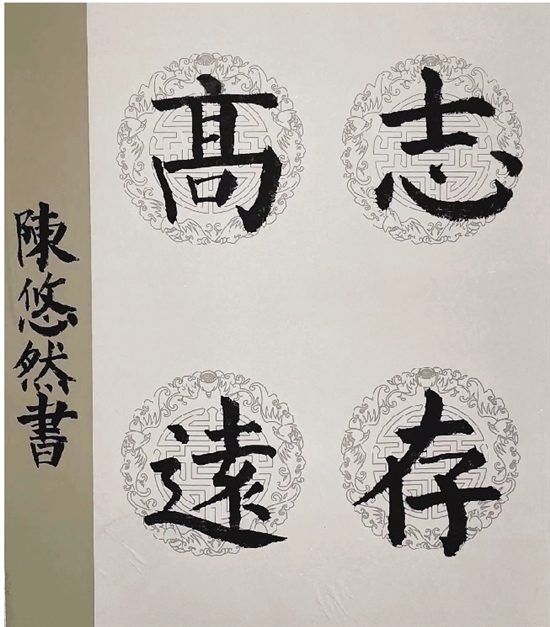 志存
髙遠
陳悠然書